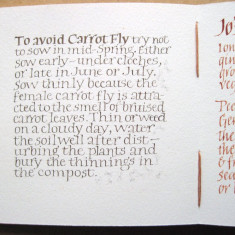 To avoid Carrot Fly try not
to sow in mid-Spring. Either
sow early – under cloches,
or late in June or July.
Sow thinly because the
female carrot fly is attra-
cted to the smell of bruised
carrot leaves. Thin or weed
on a cloudy day, water
the soil well after dist-
urbing the plants and
bury the thinnings in
the compost.